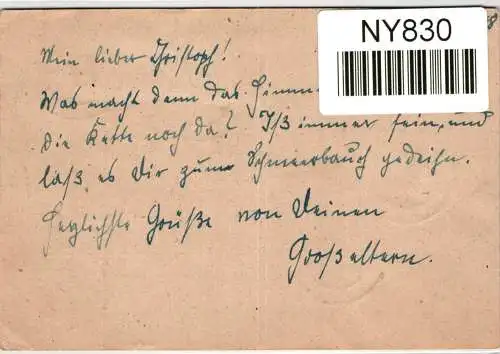 NY830
Mein lieber Christoph!
Was macht denn das
die Kette noch da? Iß immer fein, und
laß es Dir zum Schmeerbauch gedeihn.
Herzlichste Grüße von Deinen
Großeltern.